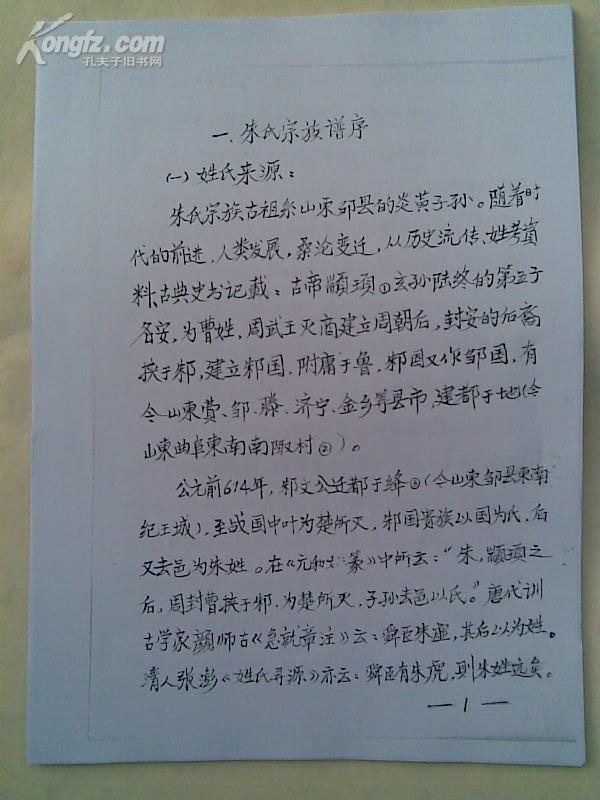 Kongfz.com
孔夫子旧书网
一、朱氏宗族谱序
(一)姓氏来源:
朱氏宗族古祖系山东邹县的炎黄子孙。随着时
代的前进,人类发展,桑沦变迁,从历史流传、姓考資
料、古典史书记載:古帝颛顼①玄孙陆终的第五子
名安,为曹姓,周武王灭商建立周朝后,封安的后裔
挟于邾,建立邾国,附庸于鲁,邾国又作邹国,有
今山東费、邹、滕、济宁、金乡等县市,建都于地(今
山東曲阜東南南陬村②)。
公元前614年,邾文公迁都于绛③(今山東邹县東南
纪王城),至战国中叶为楚所灭,邾国贵族以国为氏,后
又去邑为朱姓。在《元和姓纂》中所云:“朱,颛顼之
后,周封曹挟于邾,为楚所灭,子孙去邑以氏。”唐代训
古学家顏师古《急就章注》云:舜臣朱虚,其后以为姓。
清人张澎《姓氏寻源》亦云:舜臣有朱虎,则朱姓远矣。
—1—